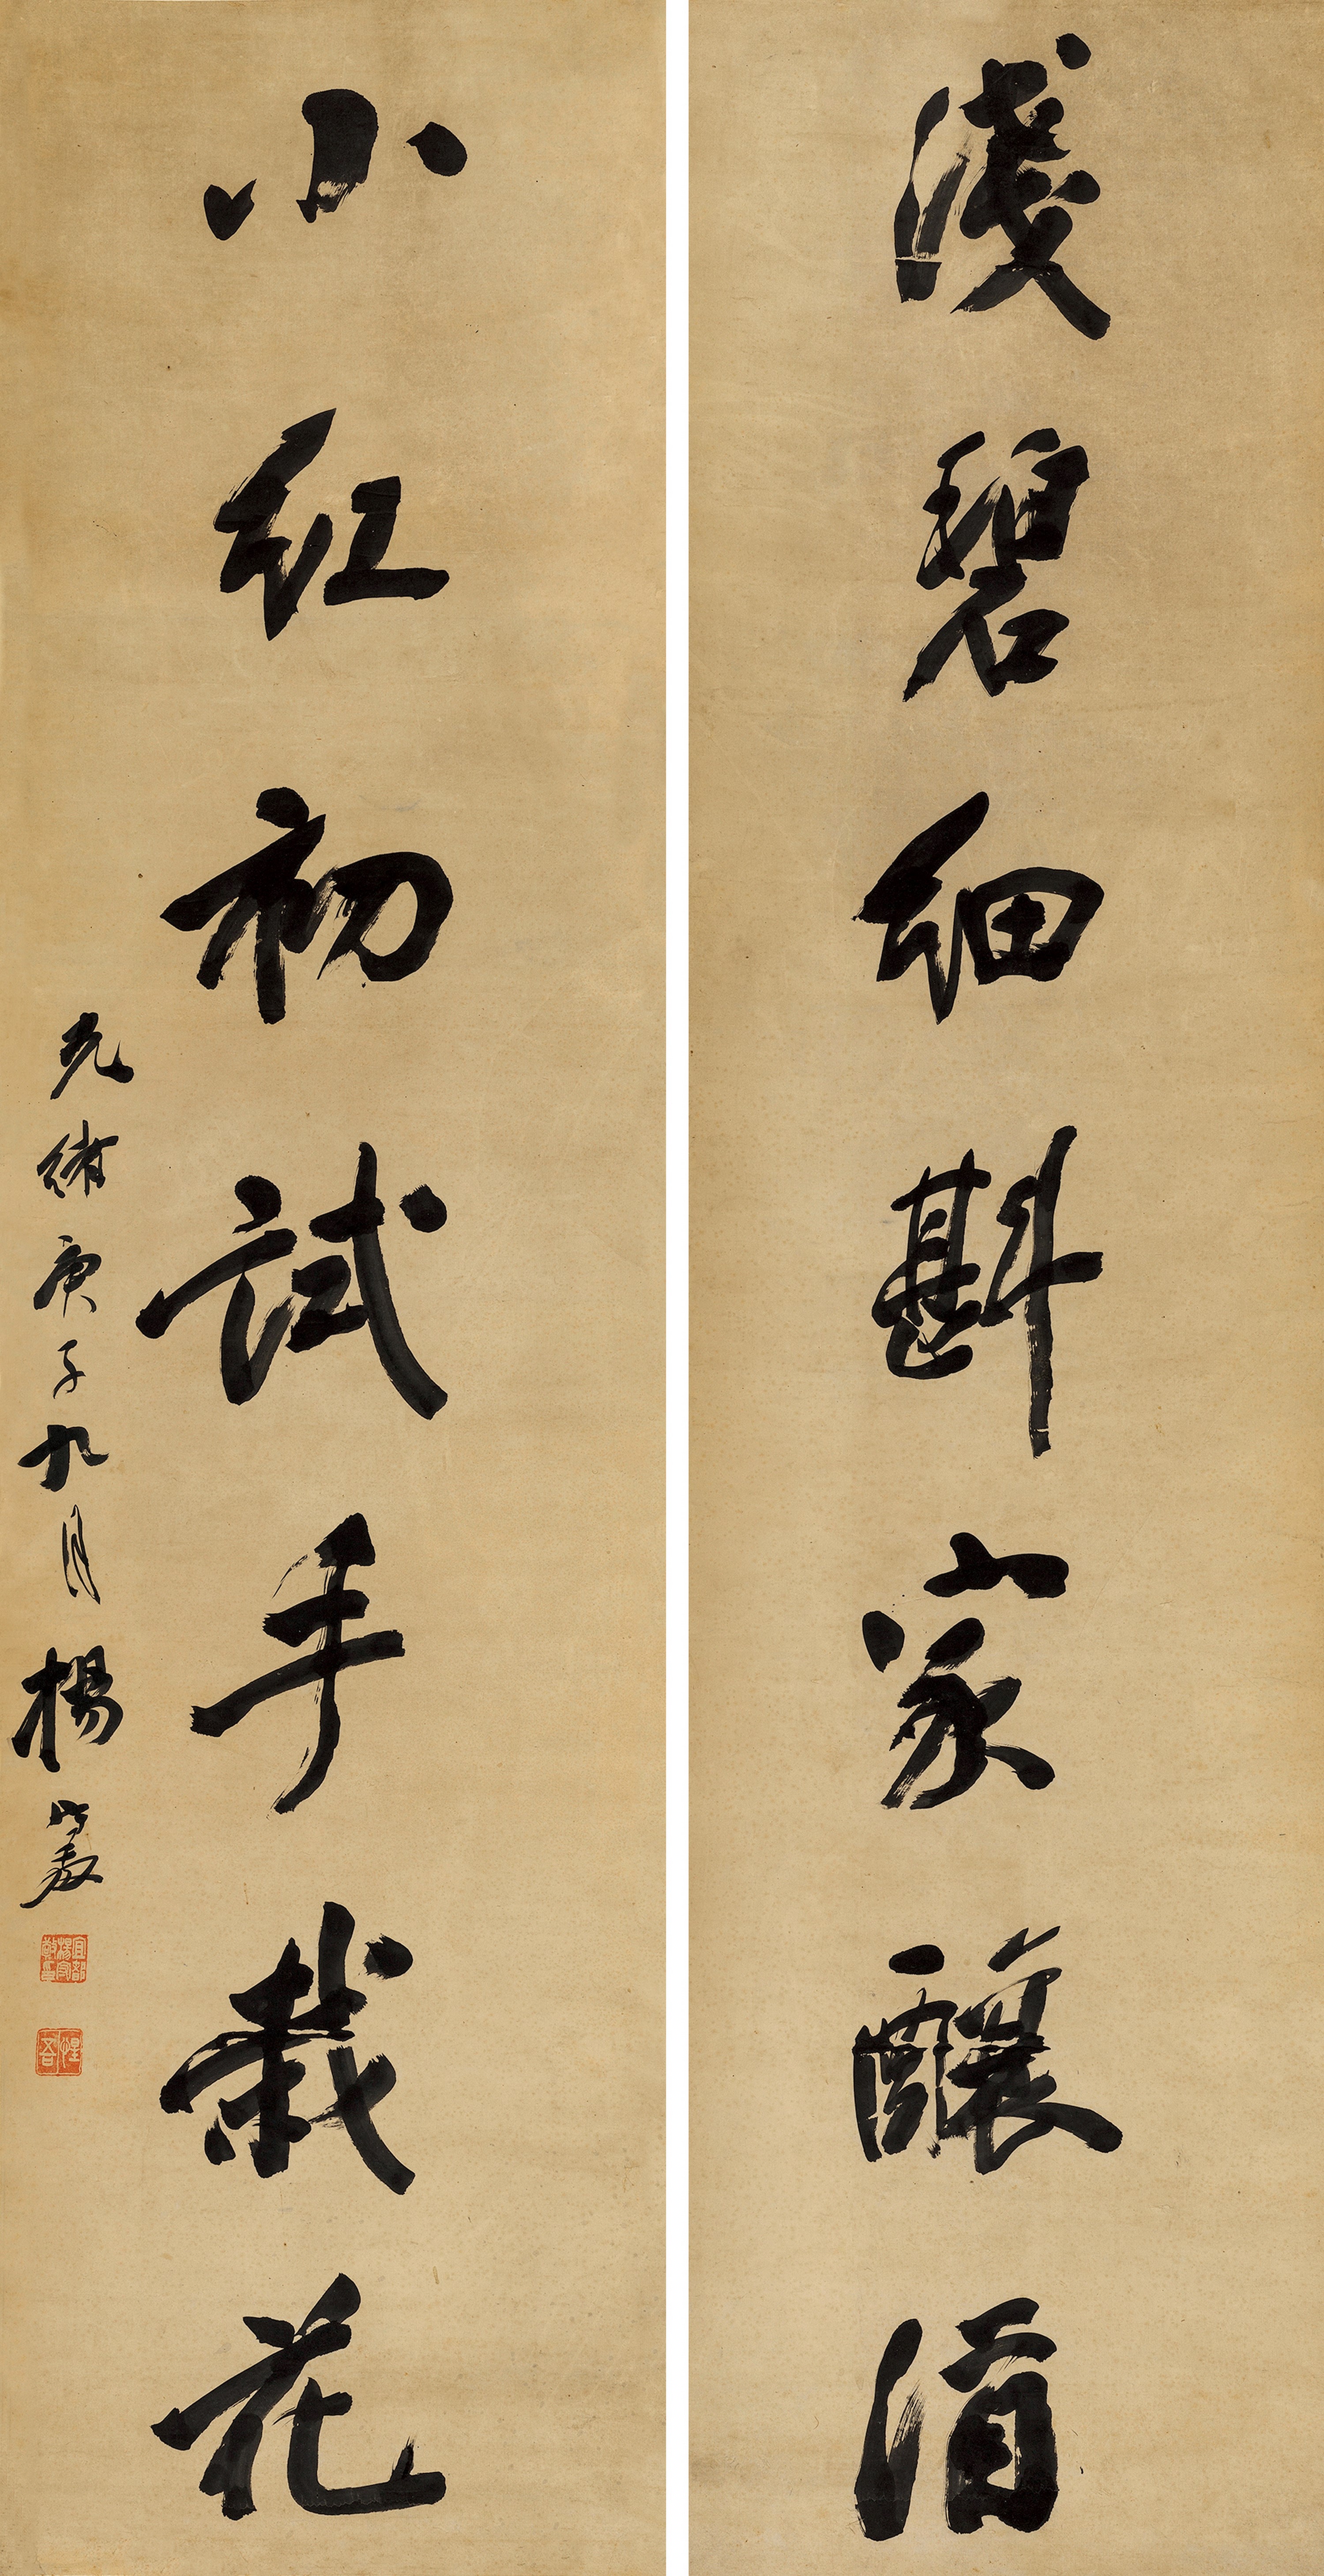 淺碧細斟家釀酒
小紅初試手栽花
光緒庚子九月楊守敬
宜都楊守敬印
惺吾